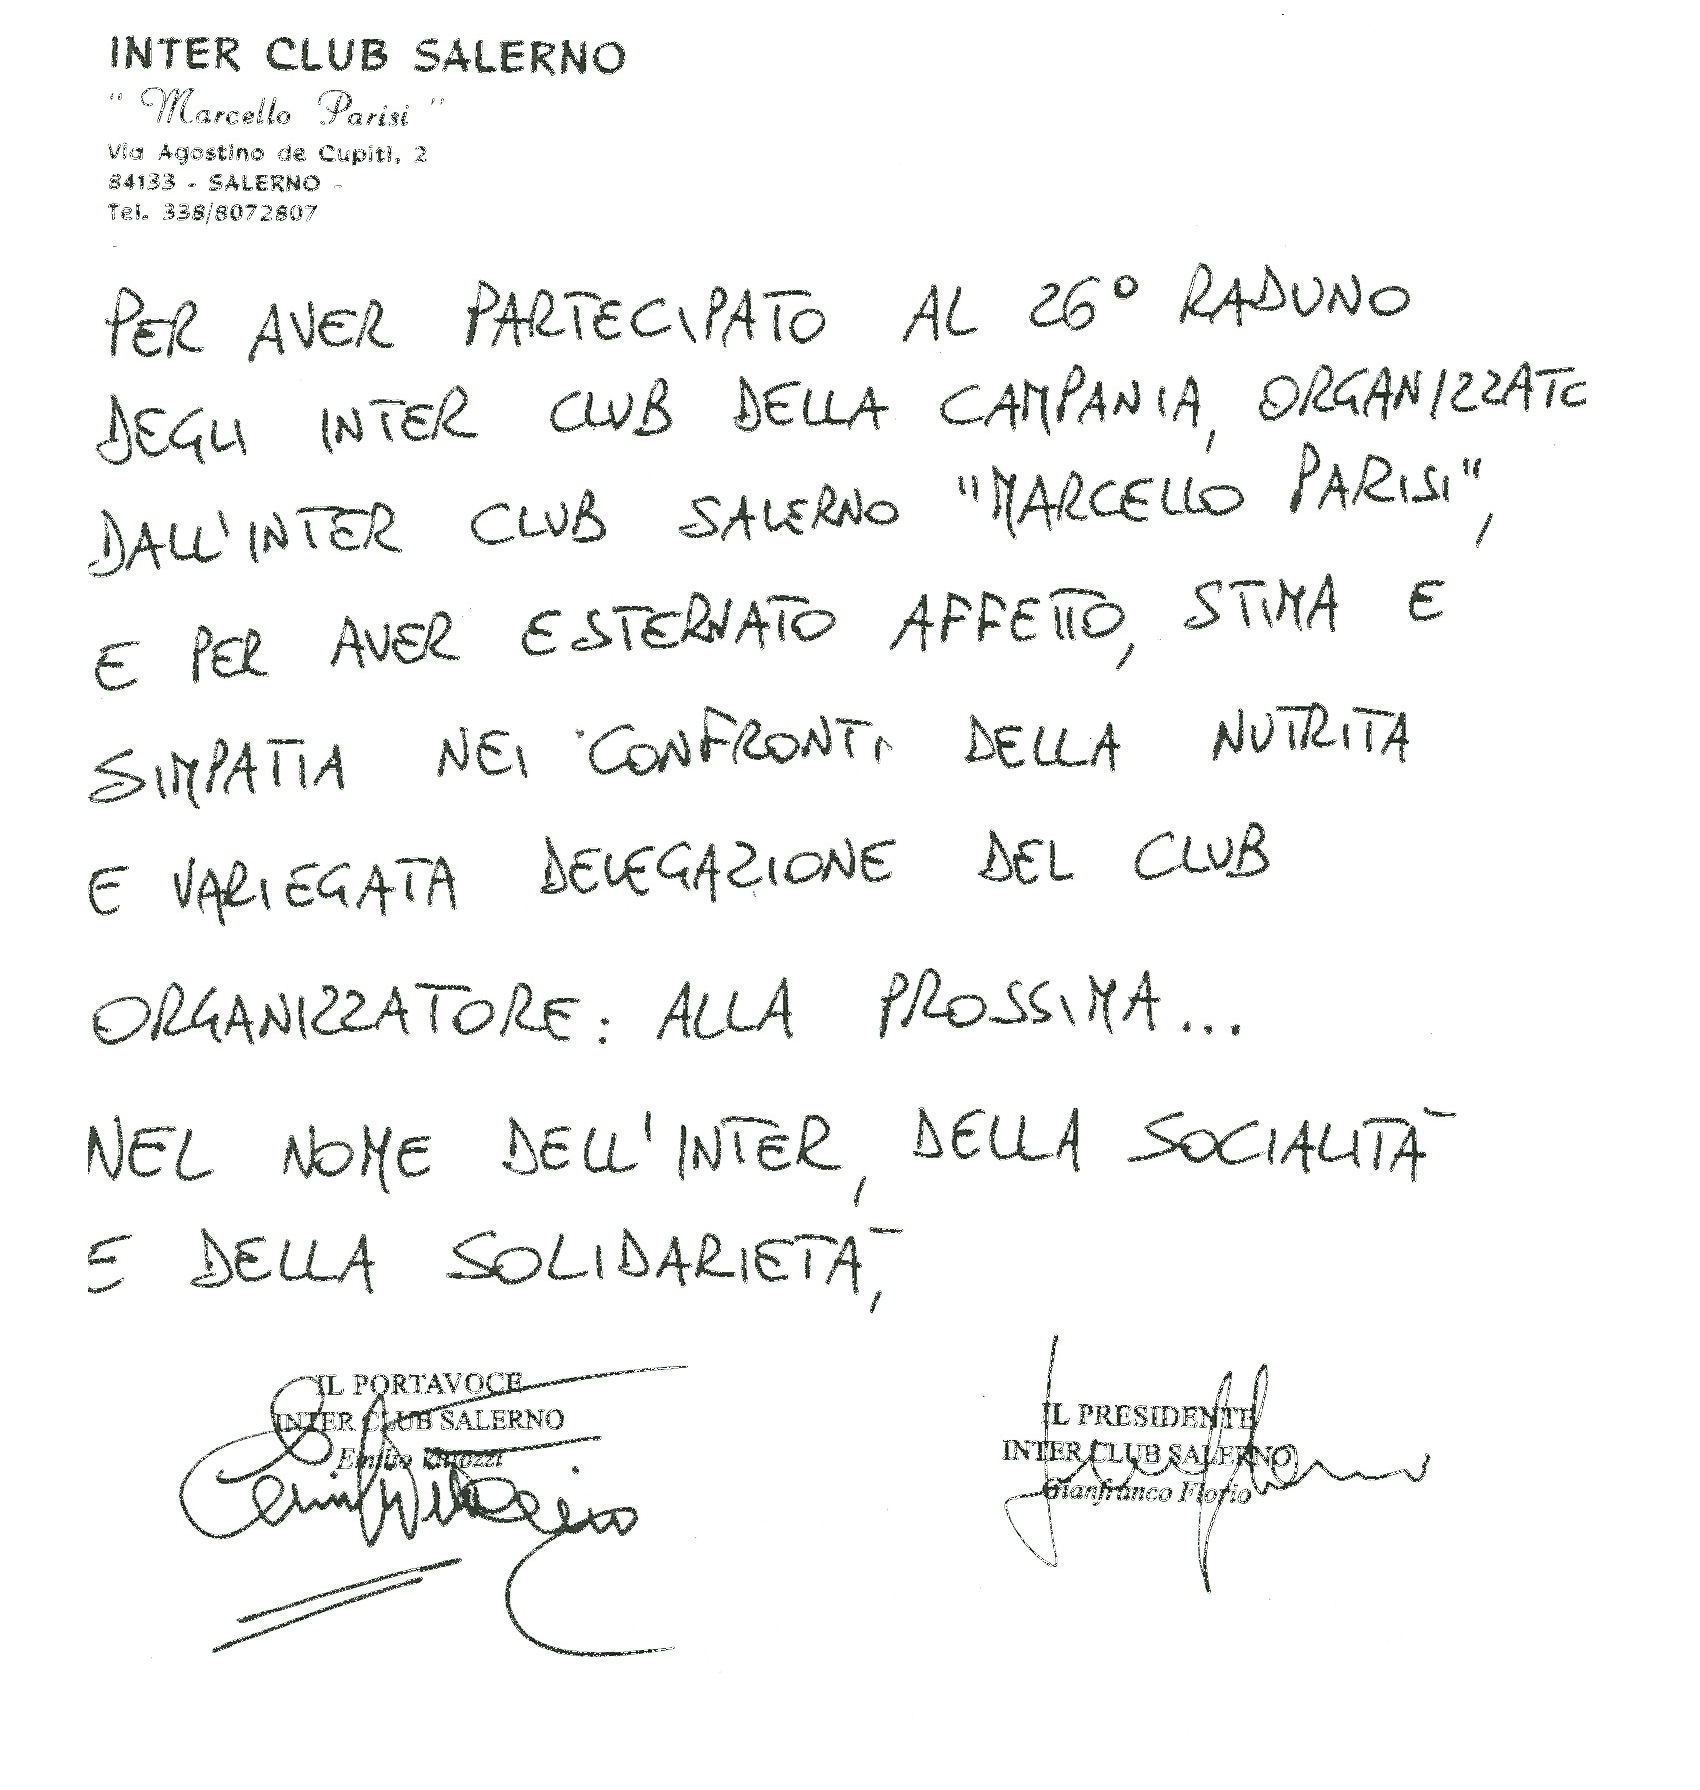 INTER CLUB SALERNO
" Marcello Parisi "
Via Agostino de Cupiti, 2
84133 - SALERNO -
Tel. 338/8072807
PER AVER PARTECIPATO AL 26° RADUNO
DEGLI INTER CLUB DELLA CAMPANIA, ORGANIZZATO
DALL'INTER CLUB SALERNO "MARCELLO PARISI",
E PER AVER ESTERNATO AFFETTO, STIMA E
SIMPATIA NEI CONFRONTI DELLA NUTRITA
E VARIEGATA DELEGAZIONE DEL CLUB
ORGANIZZATORE: ALLA PROSSIMA...
NEL NOME DELL'INTER, DELLA SOCIALITÀ
E DELLA SOLIDARIETÀ,
IL PORTAVOCE
INTER CLUB SALERNO
Emilio
IL PRESIDENTE
INTER CLUB SALERNO
Gianfranco Florio